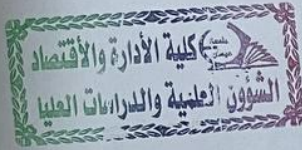 كلية الأدارة والأقتصاد
الشؤون العلمية والدراسات العليا